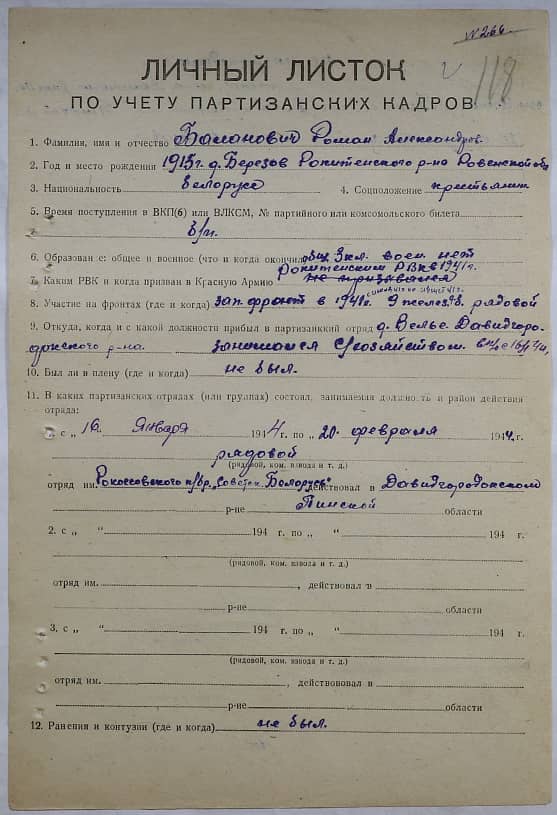 № 266
118
ЛИЧНЫЙ ЛИСТОК
ПО УЧЕТУ ПАРТИЗАНСКИХ КАДРОВ
1. Фамилия, имя и отчество Басанович Роман Александров.
2. Год и место рождения 1915г. д. Березов Ракитенского р-на Ровенской об
3. Национальность белорусс 4. Соцположение крестьянин
5. Время поступления в ВКП(б) или ВЛКСМ, № партийного или комсомольского билета
б/п.
6. Образован е: общее и военное (что и когда окончил) общ 3 кл. воен. нет
Ракитенским РВК в 1941 г.
7. Каким РВК и когда призван в Красную Армию не призывался
8. Участие на фронтах (где и когда) Зап. фронт в 1941г. 9 желез. рядовой
9. Откуда, когда и с какой должности прибыл в партизанский отряд д. Велье Давидгоро-
докского р-на. занимался с/хозяйством.
10. Был ли в плену (где и когда) не был.
11. В каких партизанских отрядах (или группах) состоял, занимаемая должность и район действия
отряда:
1. с „ 16 “ Января 1944 г. по „ 20 “ февраля 1944 г.
рядовой
(рядовой, ком. взвода и т. д.)
отряд им. Рокоссовского п/бр. „Советск. Белорусь“ действовал в Давидгородокском
р-не Пинской области
2. с „ “ 194 г. по „ “ 194 г.
(рядовой, ком. взвода и т. д.)
отряд им. , действовал в
р-не области
3. с „ “ 194 г. по „ “ 194 г.
(рядовой, ком. взвода и т. д.)
отряд им. , действововал в
р-не области
12. Ранения и контузии (где и когда) не был.